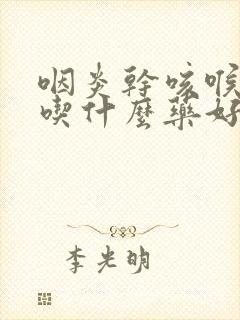 咽炎幹咳喉
喫什麼藥好
李光明